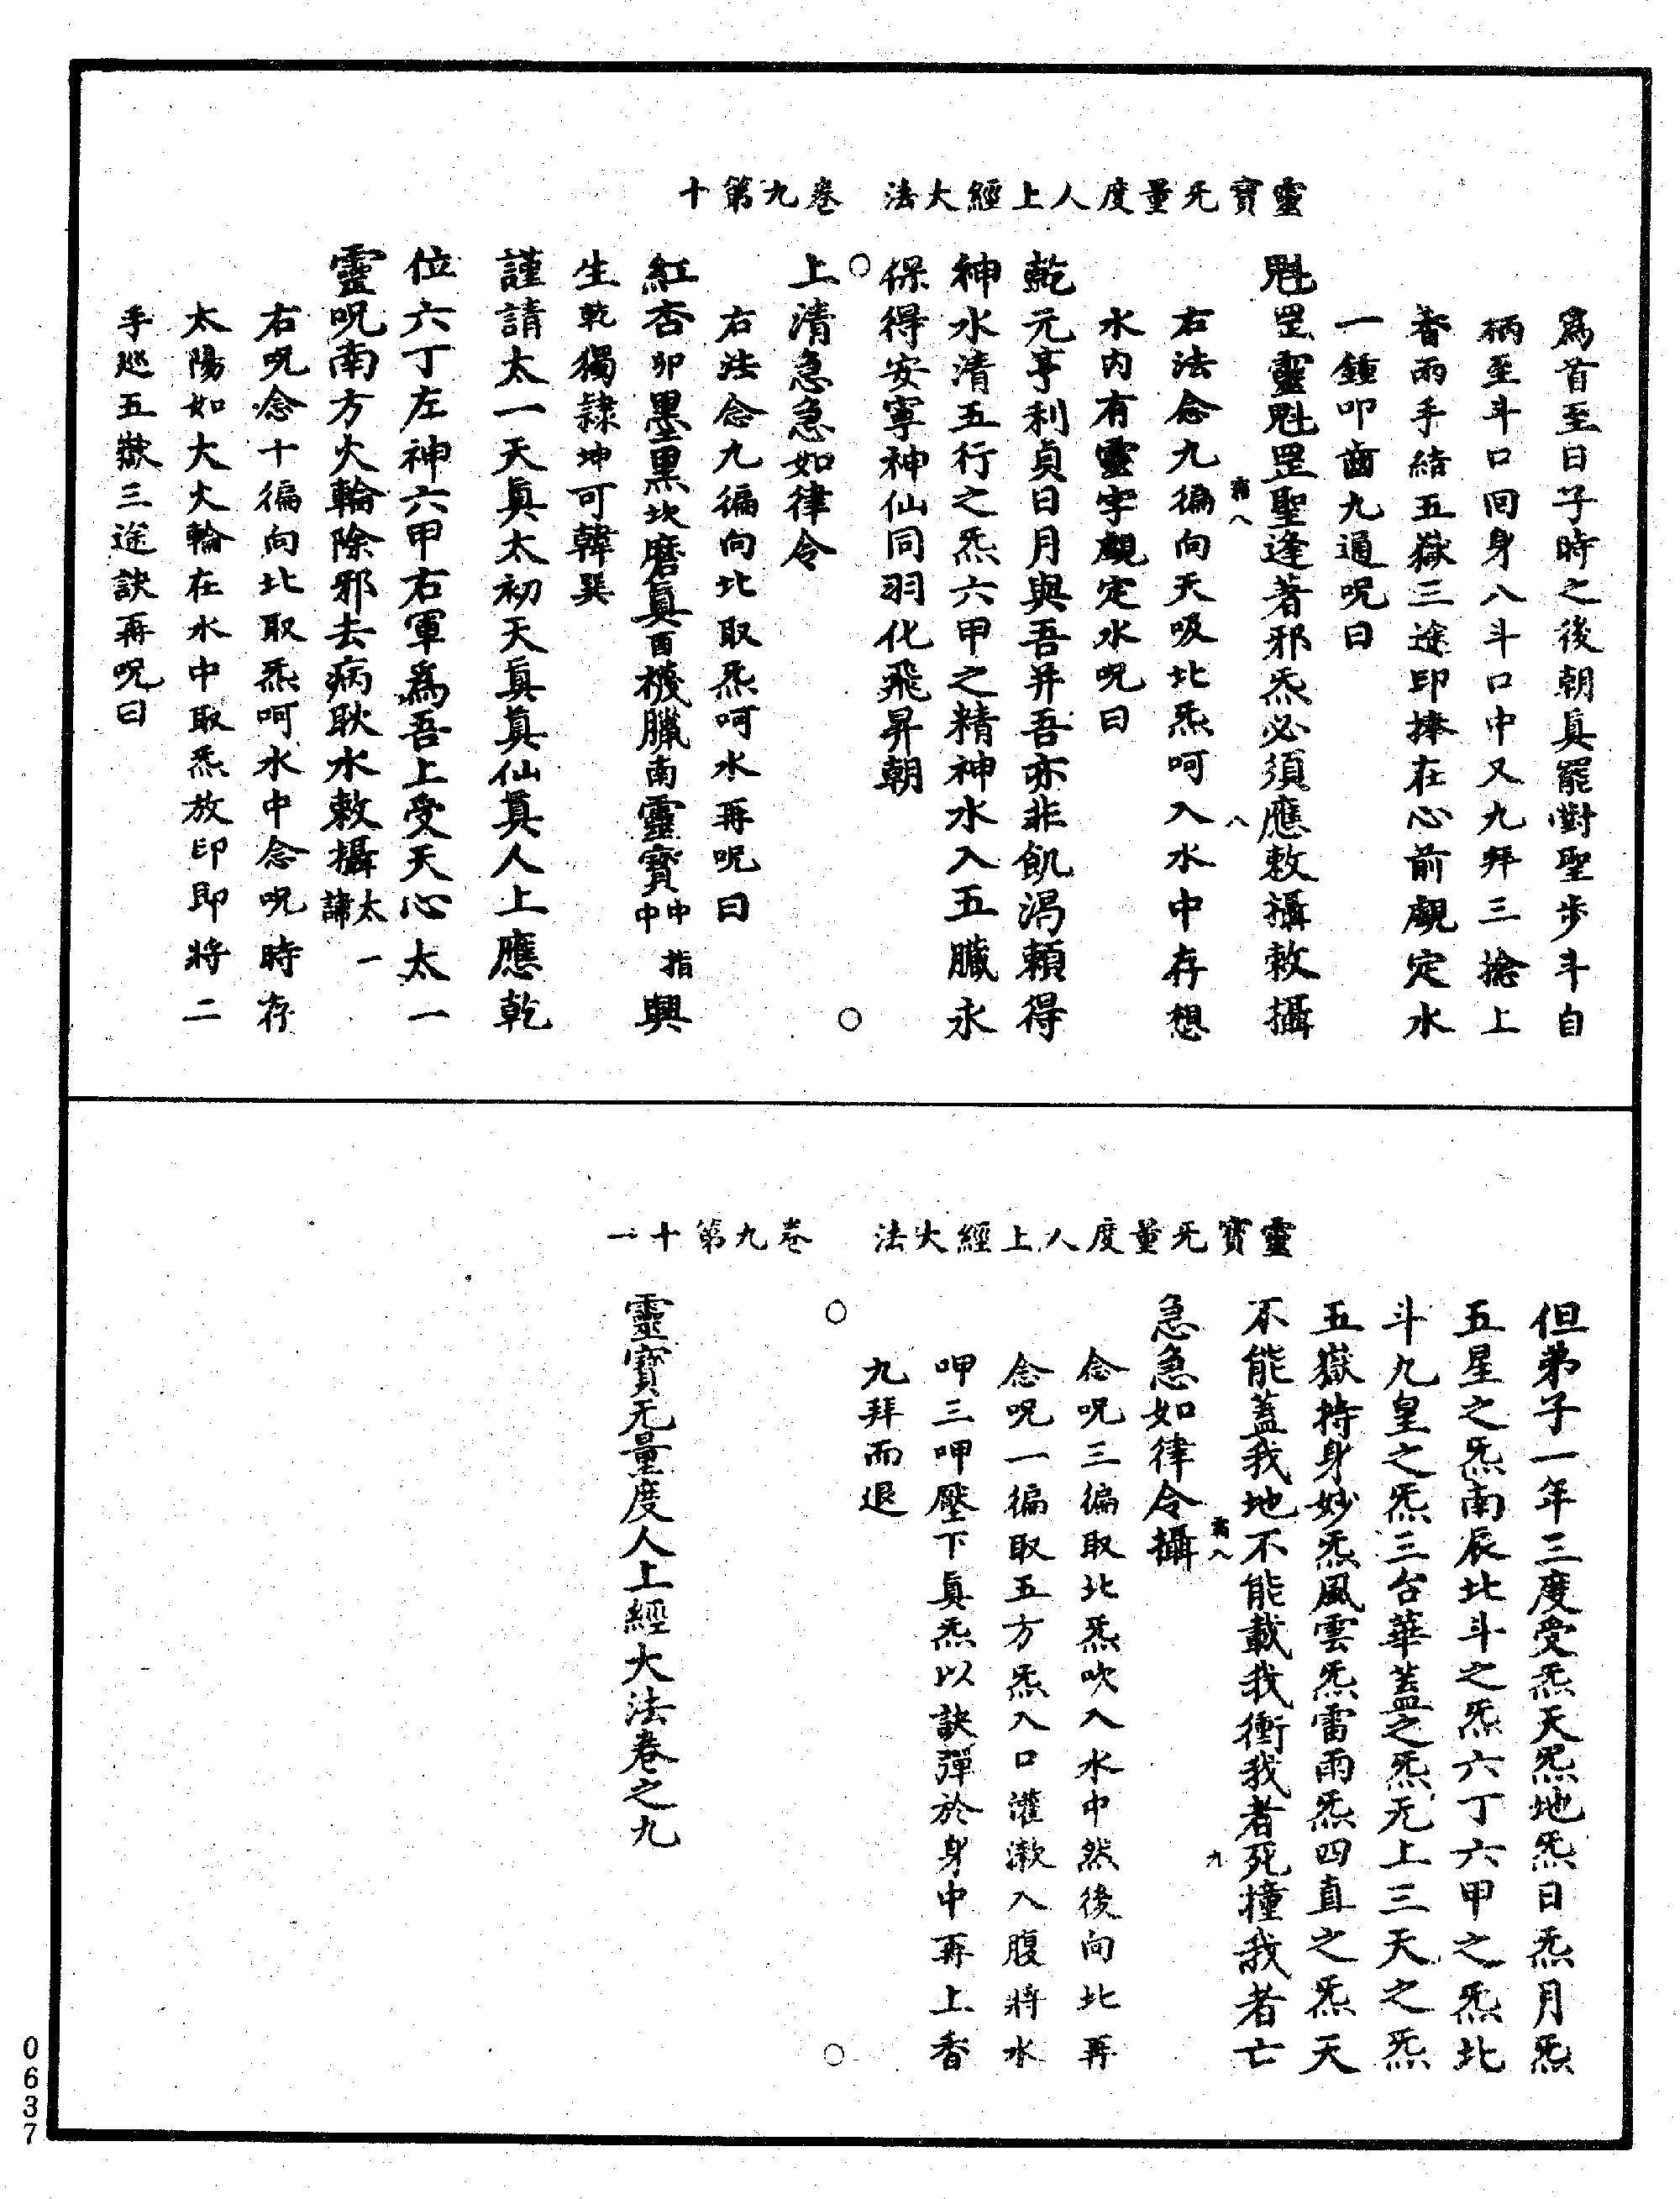 靈寶无量度人上經大法　卷九第十
爲首至日子時之後朝真罷對聖步斗自
柄至斗口回身入斗口中又九拜三捻上
香兩手結五嶽三途印捧在心前覷定水
一鍾叩齒九通呪曰
魁罡靈魁罡聖逢著邪炁必須應敕攝敕攝
八
右法念九徧向天吸北炁呵入水中存想
水内有靈字覷定水呪曰
乾元亨利貞日月與吾并吾亦非飢渴賴得
神水清五行之炁六甲之精神水入五臟永
保得安寧神仙同羽化飛昇朝
上清急急如律令
右法念九徧向北取炁呵水再呪曰
紅杏卯墨黑坎磨真酉機臘南靈寶中中指興
生乾獨隷坤可韓巽
謹請太一天真太初天真真仙真人上應乾
位六丁左神六甲右軍爲吾上受天心太一
靈呪南方火輪除邪去病耿水敕攝太一諱
右呪念十徧向北取炁呵水中念呪時存
太陽如大火輪在水中取炁放印即將二
手巡五嶽三途訣再呪曰
靈寶无量度人上經大法　卷九第十一
但弟子一年三度受炁天炁地炁日炁月炁
五星之炁南辰北斗之炁六丁六甲之炁北
斗九皇之炁三台華蓋之炁无上三天之炁
五嶽持身妙炁風雲炁雷雨炁四直之炁天
不能蓋我地不能載我衝我者死撞我者亡
九
急急如律令攝
念呪三徧取北炁吹入水中然後向北再
念呪一徧取五方炁入口灌漱入腹將水
呷三呷壓下真炁以訣彈於身中再上香
九拜而退
靈寶无量度人上經大法卷之九
0637